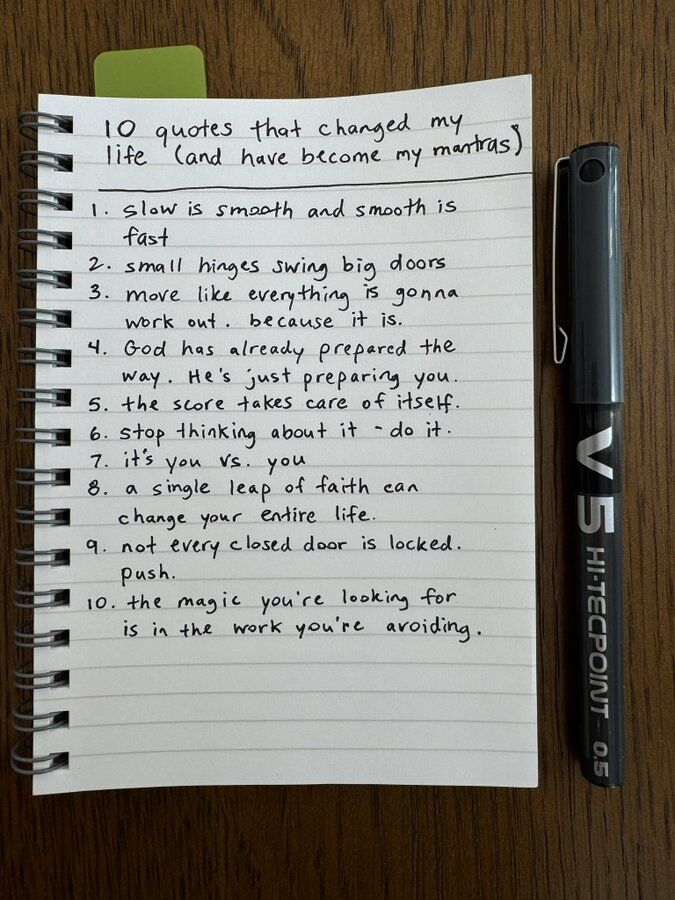 10 quotes that changed my
life (and have become my mantras)
1. slow is smooth and smooth is
fast
2. small hinges swing big doors
3. move like everything is gonna
work out. because it is.
4. God has already prepared the
way. He's just preparing you.
5. the score takes care of itself.
6. stop thinking about it - do it.
7. it's you vs. you
8. a single leap of faith can
change your entire life.
9. not every closed door is locked.
push.
10. the magic you're looking for
is in the work you're avoiding.
V5 HI-TECPOINT 0.5